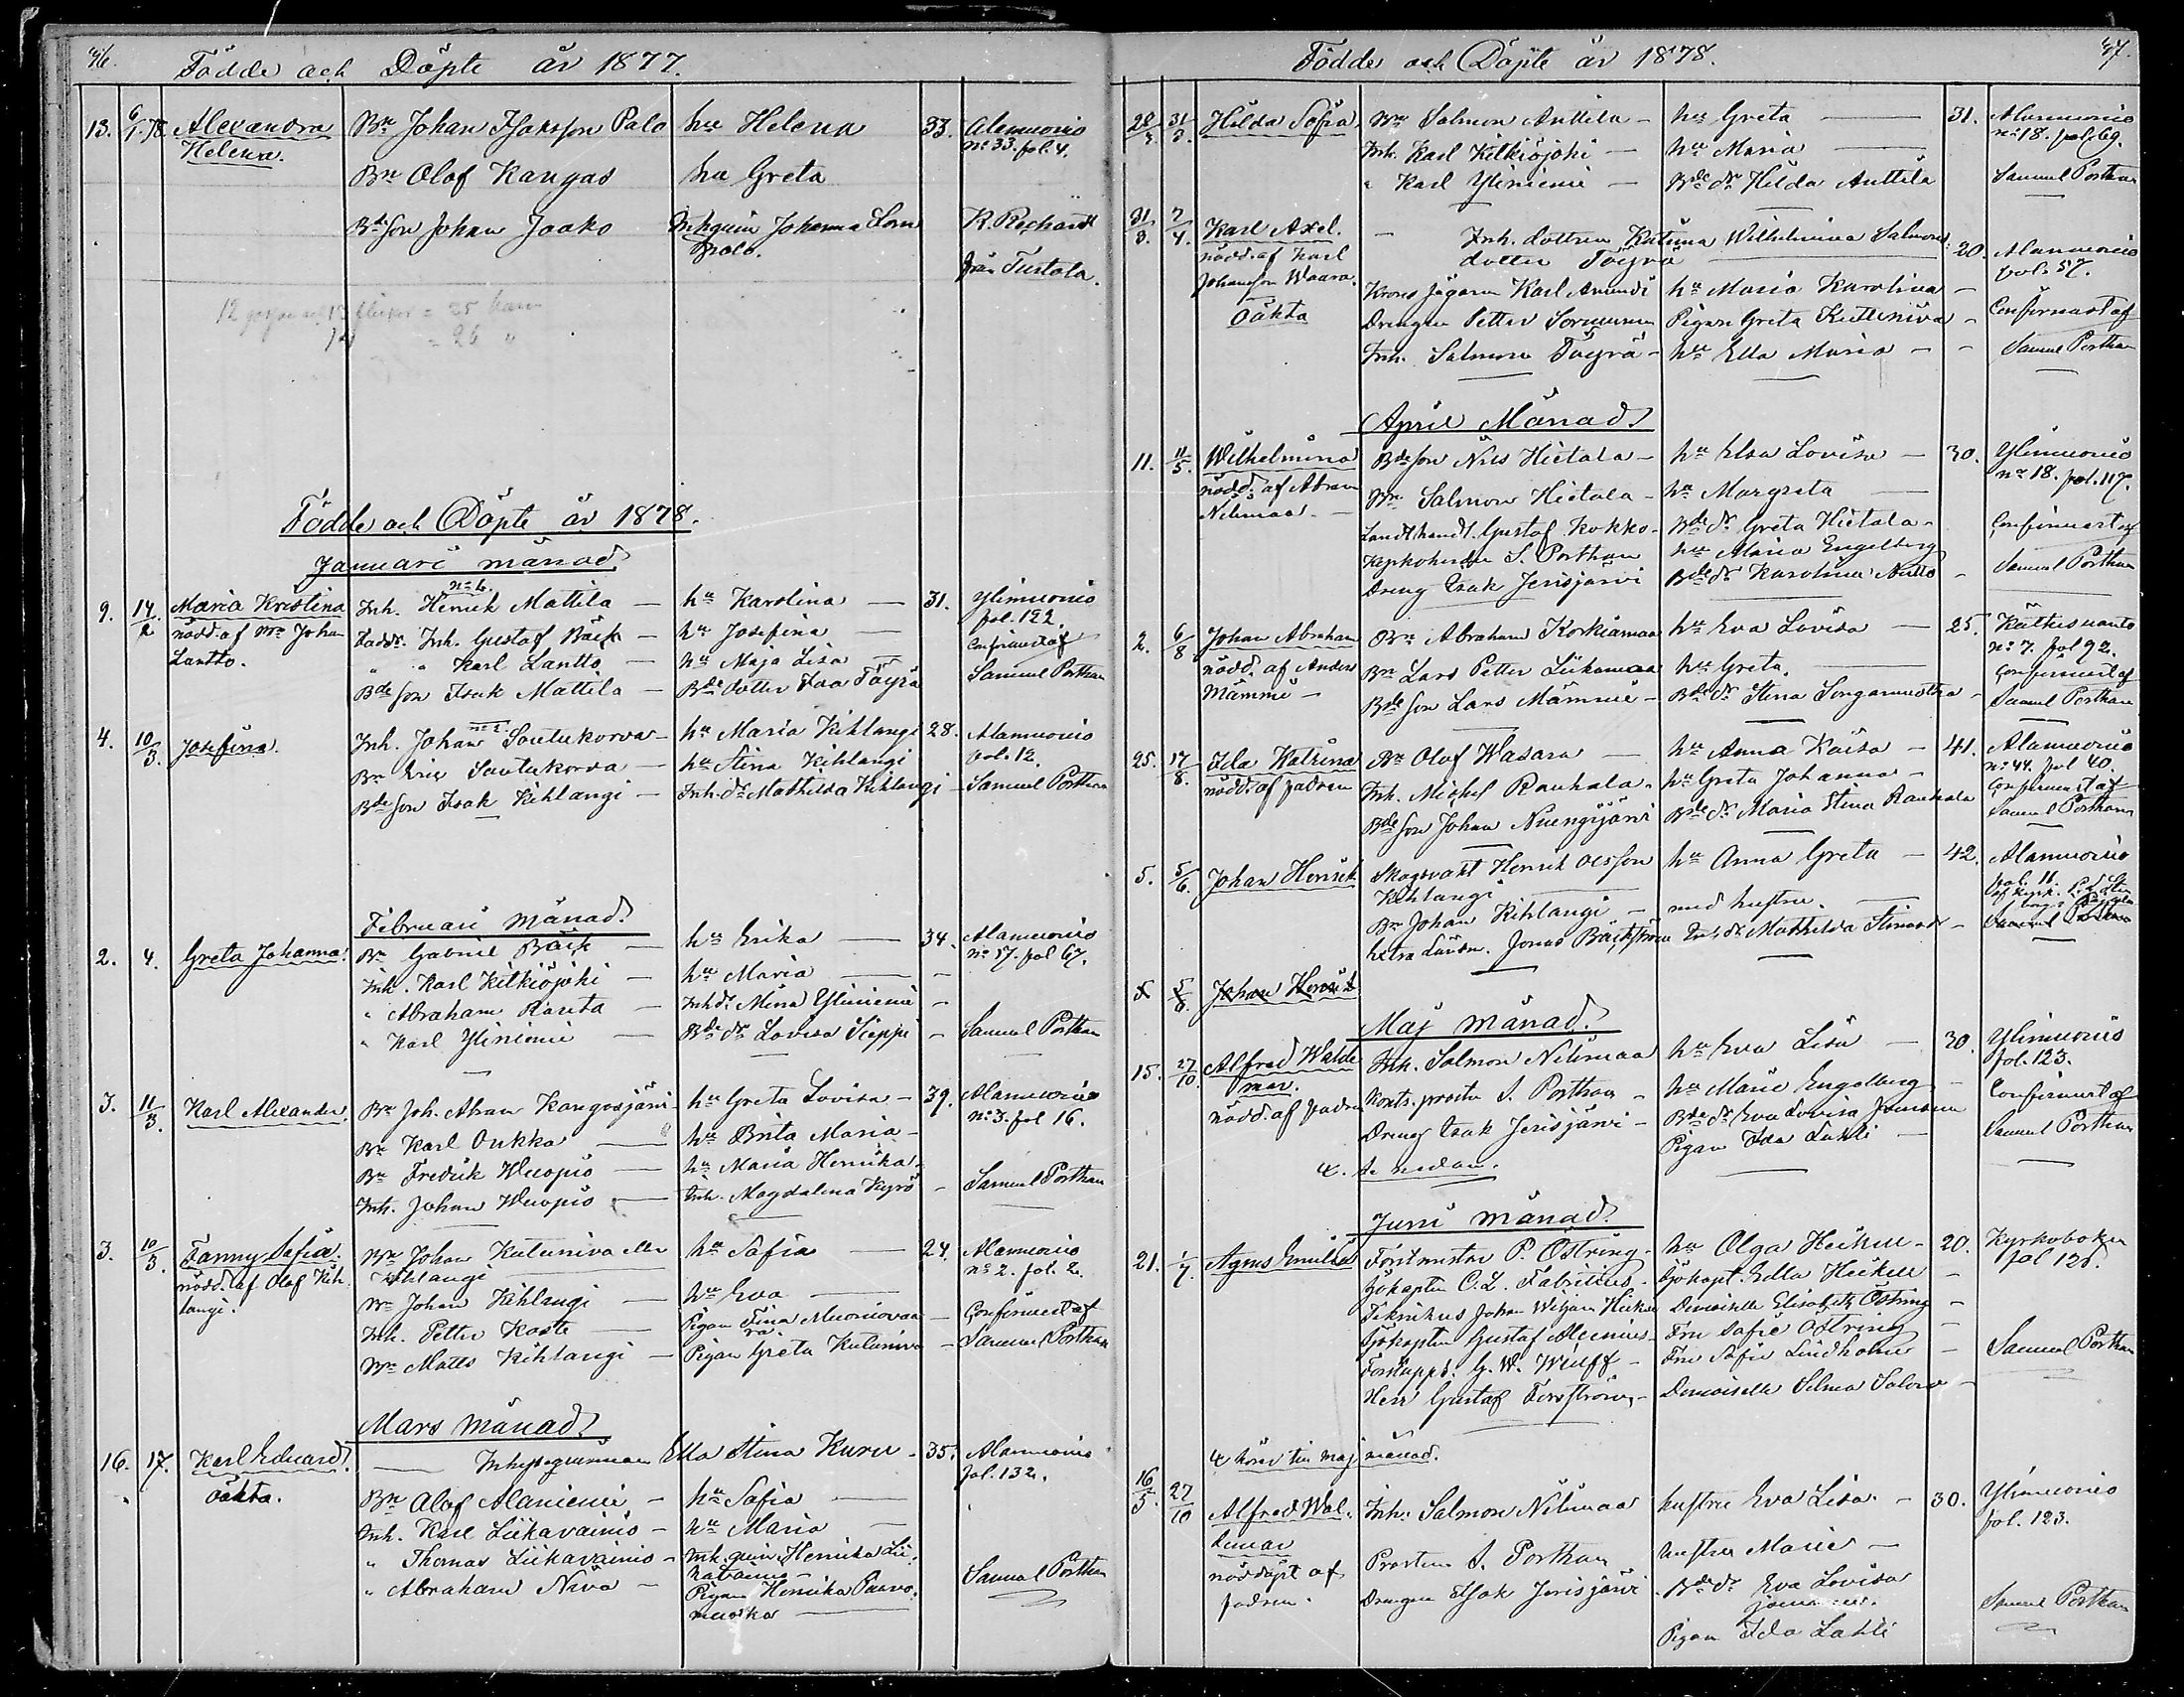 46.
Födde och Döpte år 1877.
13. 6/1.78. Alexandra Bn Johan Isaksson Palo hu Helena 33. Alamuonio
Helena. n:o 33. fol. 4.
Bn Olof Kangas hu Greta
Bd. son Johan Jaako Inh. Johanna R. Rechardt
polo. från Turtola.
12 = 25 barn
= 26 "
Födde och Döpte år 1878.
Januari månad
n:o 6.
9. 14/2 Maria Kristina Inh. Henrik Mattila — hu Karolina — 31. Ylimuonio
nödd. af Bn Johan Faddr. Inh. Gustaf Bäck — hu Josefina — fol. 122.
Lantto. " " Karl Lantto — hu Maja Lisa — Confirmerad af
Bde son Isak Mattila — Bde dotter Töyrä Samuel Porthan
4. 10/3. Josefina. Inh. Johan Soutukorva — hu Maria Kihlangi 28. Alamuonio
Bn Eric Soutukorva — hu Stina Kihlangi fol. 12.
Bde son Isak Kihlangi — Inh. dr Mathilda Kihlangi — Samuel Porthan
Februari månad.
2. 4. Greta Johanna. Bn Gabriel Bäck — hu Erika — 34. Alamuonio
Inh. Karl Kitkiöjoki — hu Maria — n:o 17. fol 67.
" Abraham Rareta — Inh dr Mina Ylinienni —
" Karl Ylinienni — Bde dr Lovisa Sieppi — Samuel Porthan
3. 11/3. Karl Alexander. Bn Joh. Abram Kangosjärvi — hu Greta Lovisa — 39. Alamuonio
Bn Karl Oukka — hu Brita Maria — n:o 3. fol 16.
Bn Fredrik Wuopio — hu Maria Henrika —
Inh. Johan Wuopio — Inh. Magdalena Kyrö — Samuel Porthan
3. 10/3. Fanny Sofia. Bn Johan Kutuniva eller hu Sofia — 24. Alamuonio
nödd. af Olof Kih- Kihlangi n:o 2. fol. 2.
langi. Bn Johan Kihlangi — hu Eva — Confirmerad af
Inh. Petter Koste — Pigan Fina Muoniovaa- — Samuel Porthan
ra.
Bn Matts Kihlangi — Pigan Greta Kutuniva
Mars månad.
16. 17. Karl Eduard. — Inhysesqvinnan Ella Stina Kuru — 35. Alamuonio
oäkta. Bn Olof Alanienni — hu Sofia — fol. 132.
Inh. Karl Liikavainio — hu Maria —
" Thomas Liikavainio — Inh. qvin. Henrika Lii-
kavainio —
" Abraham Niva — Pigan Henrika Samuel Porthan
47.
Födde och Döpte år 1878.
28/3 31/3. Hilda Sofia. Bn Salmon Anttila — hu Greta — 31. Alamuonio
Inh. Karl Kitkiöjoki — hu Maria — n:o 18. fol. 69.
" Karl Ylinienni — Bde dr Hilda Anttila Samuel Porthan
31/3. 7/4. Karl Axel. — Inh. dottren Katrina Wilhelmina Salmons
nödd. af Karl dotter Töyrä — 20. Alamuonio
Johansson Waara. fol. 57.
oäkta Krono Jägaren Karl hu Maria Karolina — Confirmerat af
Drengen Petter Pigan Greta Kuttuniva — Samuel Porthan
Inh. Salmon Töyrä — hu Ella Maria —
April Månad
11. 11/5. Wilhelmina Bde son Nils Hietala — hu Elsa Lovisa — 30. Ylimuonio
nödd. af Abram Bn Salmon Hietala — hu Margreta — n:o 18. fol. 117.
Nilimaa. — Landthandl. Gustaf Kokko — Bde dr Greta Hietala — Confirmerat af
Kyrkoherden S. Porthan hu Maria Engelberg Samuel Porthan
Dreng Isak Jerisjärvi Bde dr Karolina
2. 6/8 Johan Abraham Bn Abraham Korkiamaa hu Eva Lovisa — 25. Kätkesuanto
nödd. af Anders Bn Lars Petter Liikamaa hu Greta. — n:o 7. fol 92.
Mämmi — Bde son Lars Mämmi — Bde dr Stina Songamuotka — Confirmerat af
Samuel Porthan
25. 17/8. Ida Katrina Bn Olof Wasara — hu Anna Kaisa — 41. Alamuonio
nödd. af fadren Inh. Michel Rauhala — hu Greta Johanna — n:o 44. fol 40.
Bde son Johan Nuengijärvi Bde dr Maria Stina Rauhala Confirmerat af
Samuel Porthan
5. 5/6. Johan Henrik Skogsvakt Henrik Olsson hu Anna Greta — 42. Alamuonio
Kihlangi — fol. 11.
Bn Johan Kihlangi — med hustru. —
Jonas Bäckström Mathilda Samuel Porthan
5 5/6. Johan Henrik
Maj månad.
15. 27/10. Alfred Walde Inh. Salmon Nilimaa hu Eva Lisa — 30. Ylimuonio
mar. fol. 123.
nödd. af fadren Kontr. prosten S. Porthan — hu Marie Engelberg — Confirmerat af
Dreng Isak Jerisjärvi — Bde dr Eva Lovisa Samuel Porthan
Pigan Ida Lahti —
se nedan.
Juni månad.
21. 1/7. Agnes Emilia Forstmästar P. Östring — hu Olga Heikell — 20. Kyrkoboken
Sjökapten C. L. Fabritius — Sjökapt. Edla Heikell — fol 128.
Teknikus Johan Wiljam Heikell Demoiselle Elisabeth Östring —
Sjökapten Gustaf — Fru Sofie Östring —
Forstuppt. G. W. Wulff — Fru Sofie Lindholm — Samuel Porthan
Herr Gustaf Forsström — Demoiselle Selma —
hörer till maj månad.
16/5. 27/10 Alfred Wal- Inh. Salmon Nilimaa hustru Eva Lisa — 30. Ylimuonio
demar fol. 123.
nöddöpt af Prosten S. Porthan hustru Marie —
fadren. Drengen Isak Jerisjärvi Bde dr Eva Lovisa
Samuel Porthan
Pigan Ida Lahti